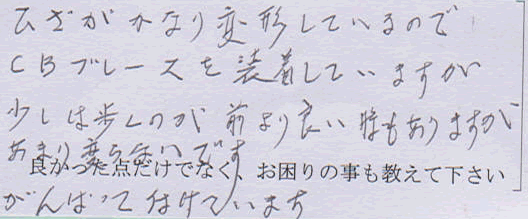 ひざがかなり変形しているので
CBブレースを装着していますが
少しは歩くのが前より良い時もありますが
あまり変らないです
良かった点だけでなく、お困りの事も教えて下さい
がんばって付けています